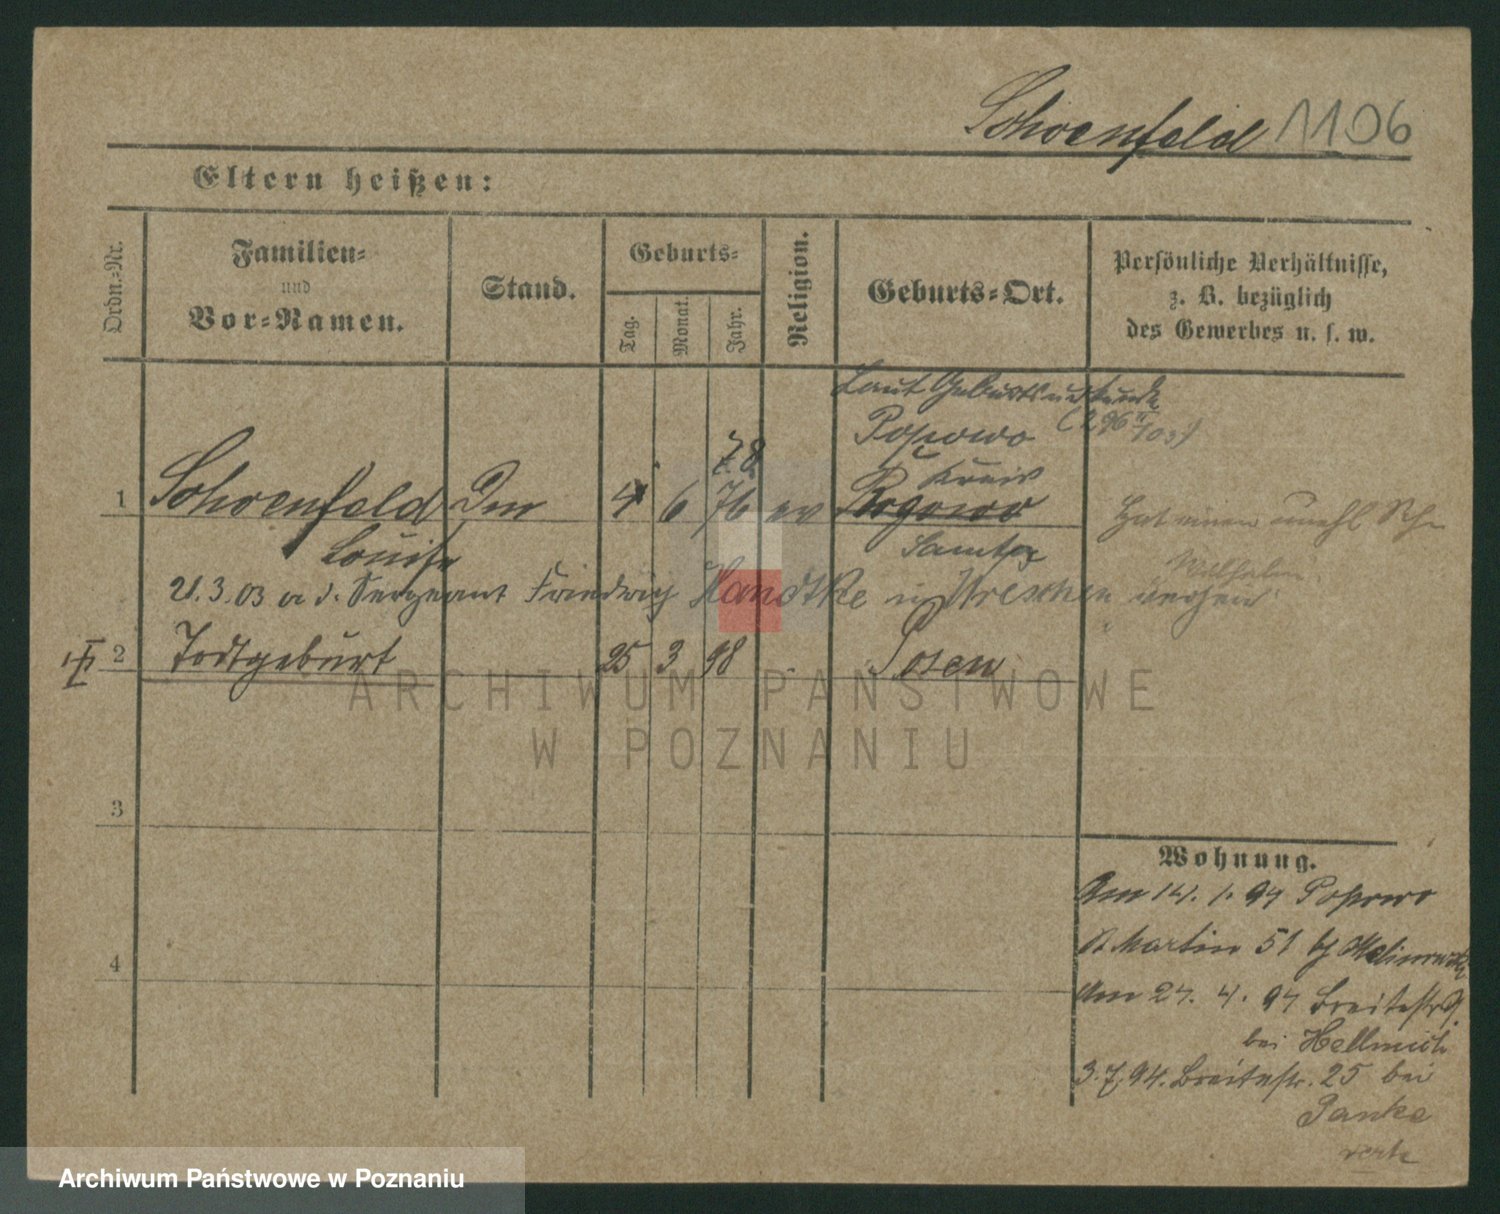 Schoenfeld 1106
Eltern heißen:
Ordn.-Nr.
Familien-
und
Vor-Namen.
Stand.
Geburts-
Tag.
Monat.
Jahr.
Religion.
Geburts-Ort.
Persönliche Verhältnisse,
z. B. bezüglich
des Gewerbes u. s. w.
Laut Geburtsurkunde
Popowo
78
Kreis
1 Schoenfeld 4 6 76 ev Rogowo
Louise Samter
Hat einen unehl
Wilhelm
21.3.03 a d. Sergeant Friedrich Handtke in Wreschen
2 Todtgeburt 25 3 98 Posen
ARCHIWUM PAŃSTWOWE
W POZNANIU
3
4
Wohnung.
Am 14. 1. 94 Popowo
St Martin 51
Am 27. 4. 94 Breitestr
bei Hellmich
3.7.94. Breitestr. 25 bei
Panke
Archiwum Państwowe w Poznaniu